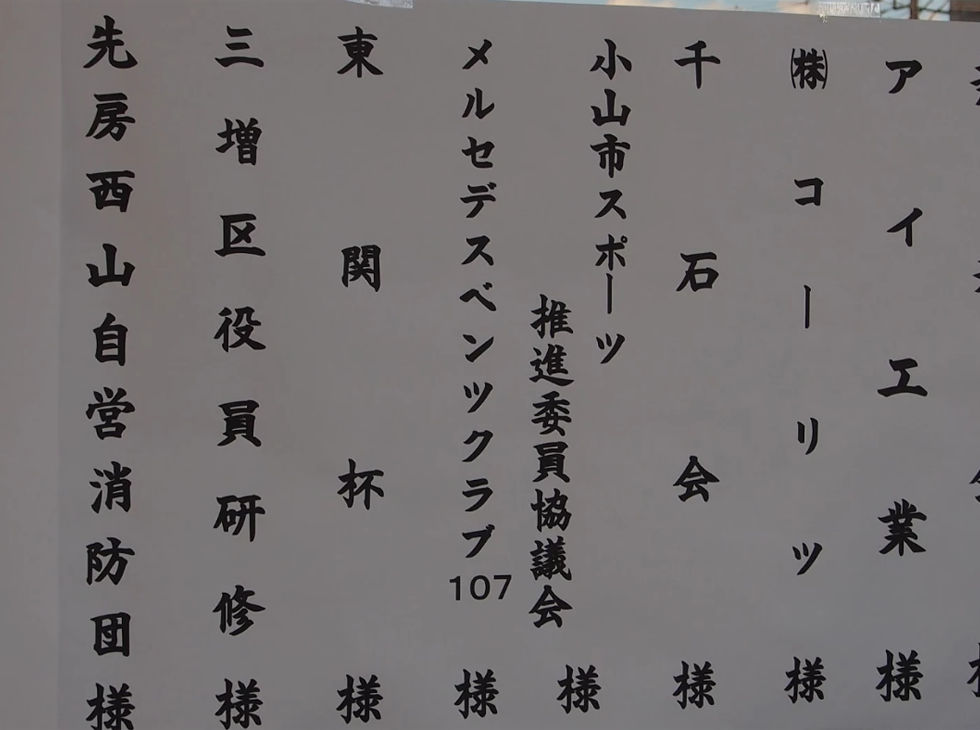 アイエ業様
㈱コーリツ様
千石会様
小山市スポーツ
推進委員協議会様
メルセデスベンツクラブ107様
東関杯様
三増区役員研修様
先房西山自営消防団様